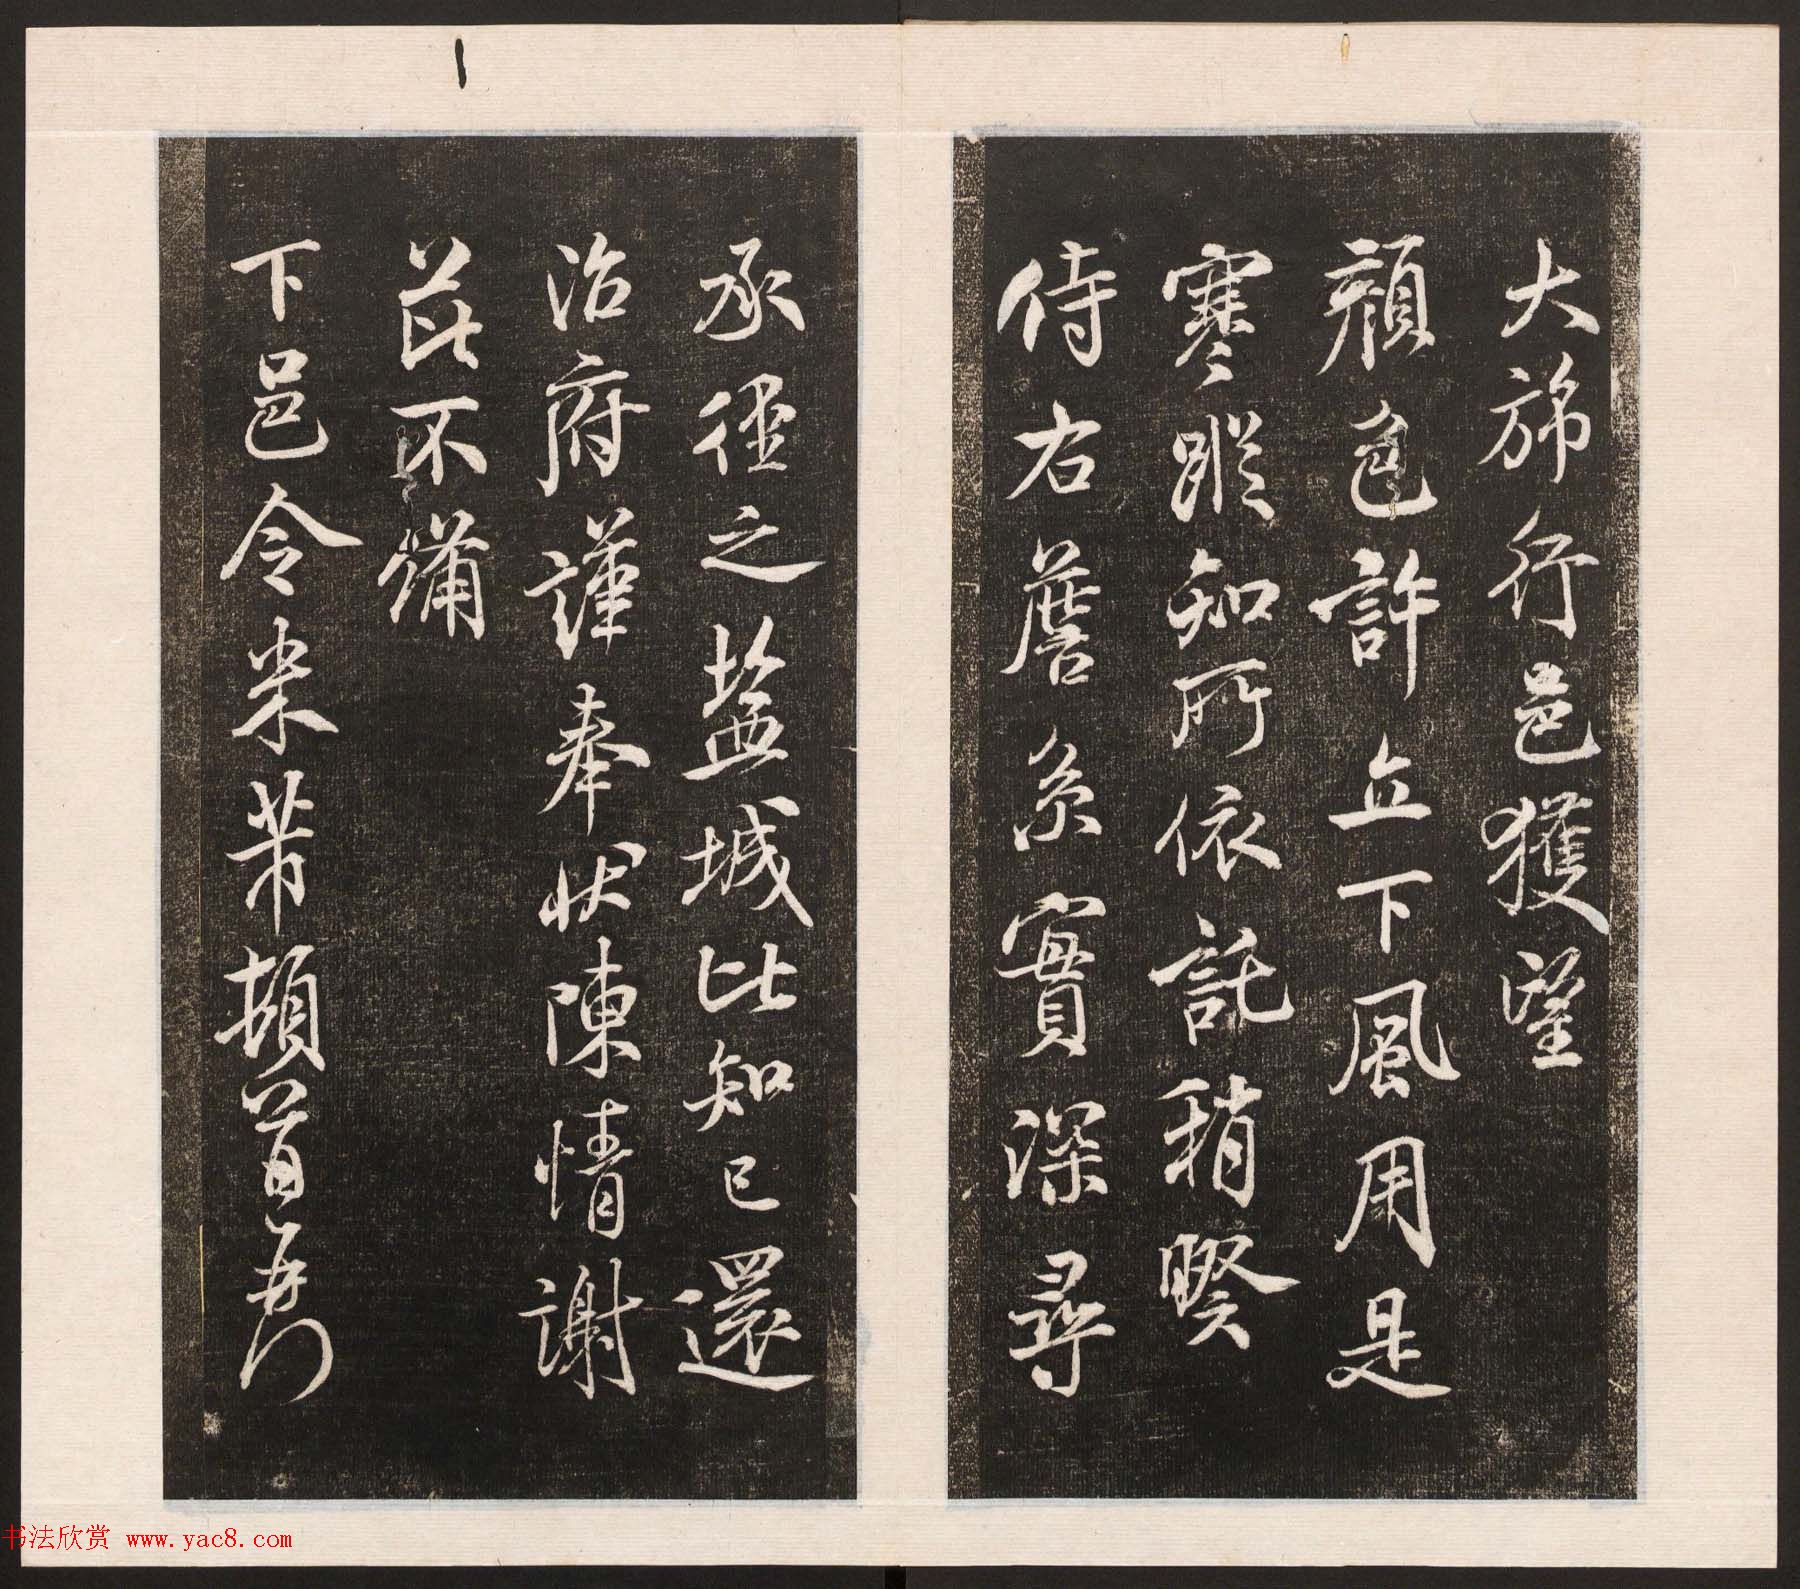 大旆行邑獲望
顏色許立下風用是
寒蹤知所依託稍睽
侍右詹系實深尋
承徑之盐城比知已還
治府謹奉状陳情謝
茲不備
下邑令米芾頓首再
书法欣赏 www.yac8.com